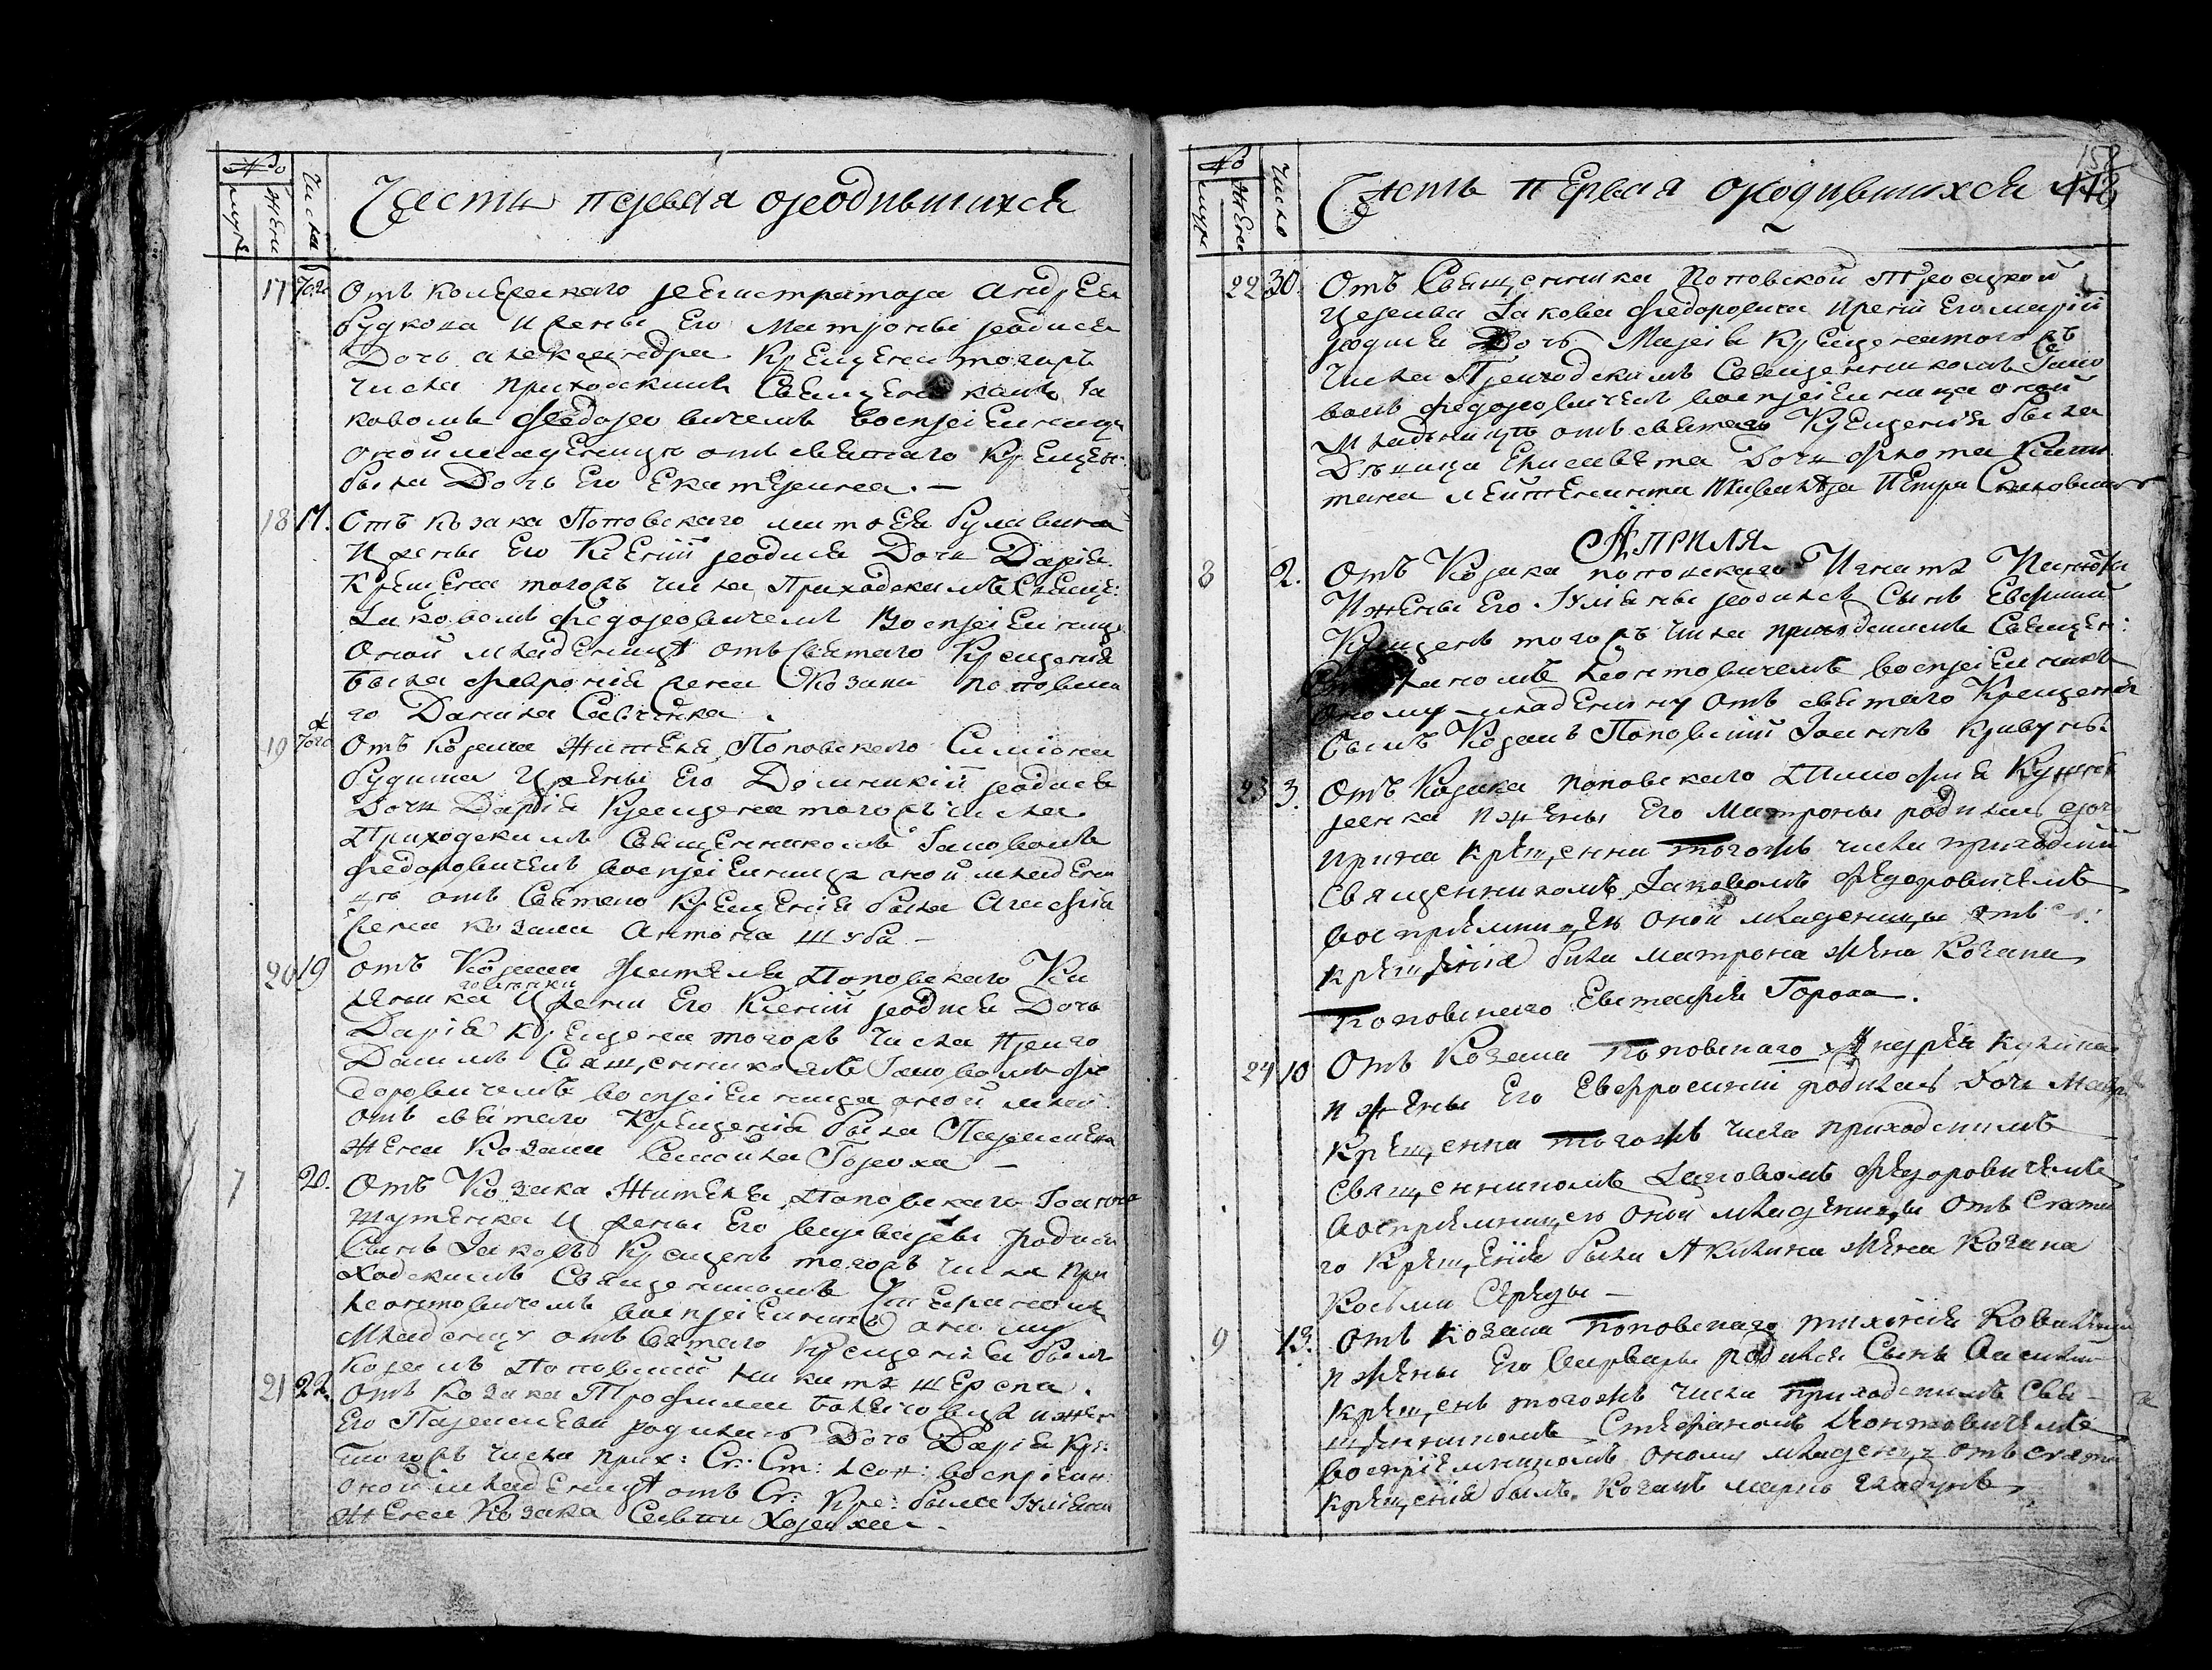 №
муж
жен
Числа
Часть первая ород​ившихся
17 Того От Колежскаго регистратора Андрея
Рудкова и жены его Матроны родися
Дочь александра Крещена тогожъ
числа приходскимъ Священикомъ Іа
ковомъ Федоровичемъ воспріемница
оной младеницѣ отъ святаго Крещен:
была Дочь его Екатерина. —
18 17. Отъ козака Поповскаго
И жены его Ксеніи родися Дочь Дарія
Крещена тогожъ числа Приходскимъ Свящ:
Іаковомъ Федоровичемъ Воспріемница
Оной младеницѣ отъ святаго Крещенія
была Феврониія жена Козака поповска
го Данила Савченка.
19 того Отъ козака жителя Поповскаго Симіона
Рудича И жены его Домникіи родися
Дочь Дарія Крещена тогожъ числа
Приходскимъ Священникомъ Іаковомъ
Федоровичемъ воспріемница оной младени
цѣ отъ Святаго Крещенія была Агафія
жена козака Антона Шуба —
20 19 отъ Козака жителя Поповскаго
И жены его Ксеніи родися Дочь
Дарія Крещена тогожъ числа прихо
дскимъ Священникомъ Іаковомъ Фе
доровичемъ воспріемница оной млад:
отъ святаго Крещенія была Параскева
жена Козака Самойла Гороха —
7 20. Отъ Козака Жителя Поповскаго Іоанна
И жены его Варвары родися
Сынъ Іаковъ Крещенъ тогожъ числа при
ходскимъ Священикомъ Стефаномъ
Леонтовичемъ воспріемникъ оному
младенцу отъ Святаго Крещенія былъ
козакъ Поповский Никита Шерепа.
21 22. отъ Козака Трофима и жен
его Параскевы родилась Дочь Дарія Кре:
тогожъ числа прих: Св: Ст: Леон: воспріемн:
оной младеницѣ отъ Св: Кре: была Іуліана
жена Козака Саввы
№
муж
жен
Число
158
178
Часть первая ородившихся
22 30. Отъ Священника Поповской Троецкой
церкви Іакова Федоровича и жени его Маріи
родися Дочь Марія Крещена тогожъ
числа Приходскимъ Священникомъ Іако
вомъ Федоровичемъ воспріемница оной
младеницѣ отъ святаго Крещенія была
Дѣвица Елисавета Дочь флота Капи
тана лейтенанта Кавалера Петра
Априля
8 2. Отъ Козака поповскаго Игната
И жены его Іуліаны родился Сынъ Евфимий
Крещенъ тогожъ числа приходскимъ Священ:
Стефаномъ Леонтовичемъ воспріемникъ
оному младенцу отъ святаго Крещенія
былъ Козакъ Поповский Іоаннъ Кривунъ.
23 3. Отъ Козака поповскаго Тимофея
ренка и жены его Матроны родилась дочь
Ирина крещенна тогожъ числа приходский
священникомъ Іаковомъ Федоровичемъ
воспріемницею оной младеницы отъ св:
крещенія была матрона жена козака
Поповскаго Евстафія Гороха.
24 10 Отъ Козака Поповскаго Андрея
и жены его Евфросиніи родилась дочь Мавр:
крещенна тогожъ числа приходскимъ
священникомъ Іаковомъ Федоровичемъ
воспріемницею оной младеницы отъ Свята
го Крещенія была Акилина жена Козака
Косьмы Середы —
9 13. Отъ Козака Поповскаго
и жены его варвары родился Сынъ Василий
крещенъ тогожъ числа приходскимъ Свя
щенникомъ Стефаномъ Леонтовичемъ
воспріемникомъ оному младенцу отъ свята
крещенія былъ Козакъ Марко Гладунъ